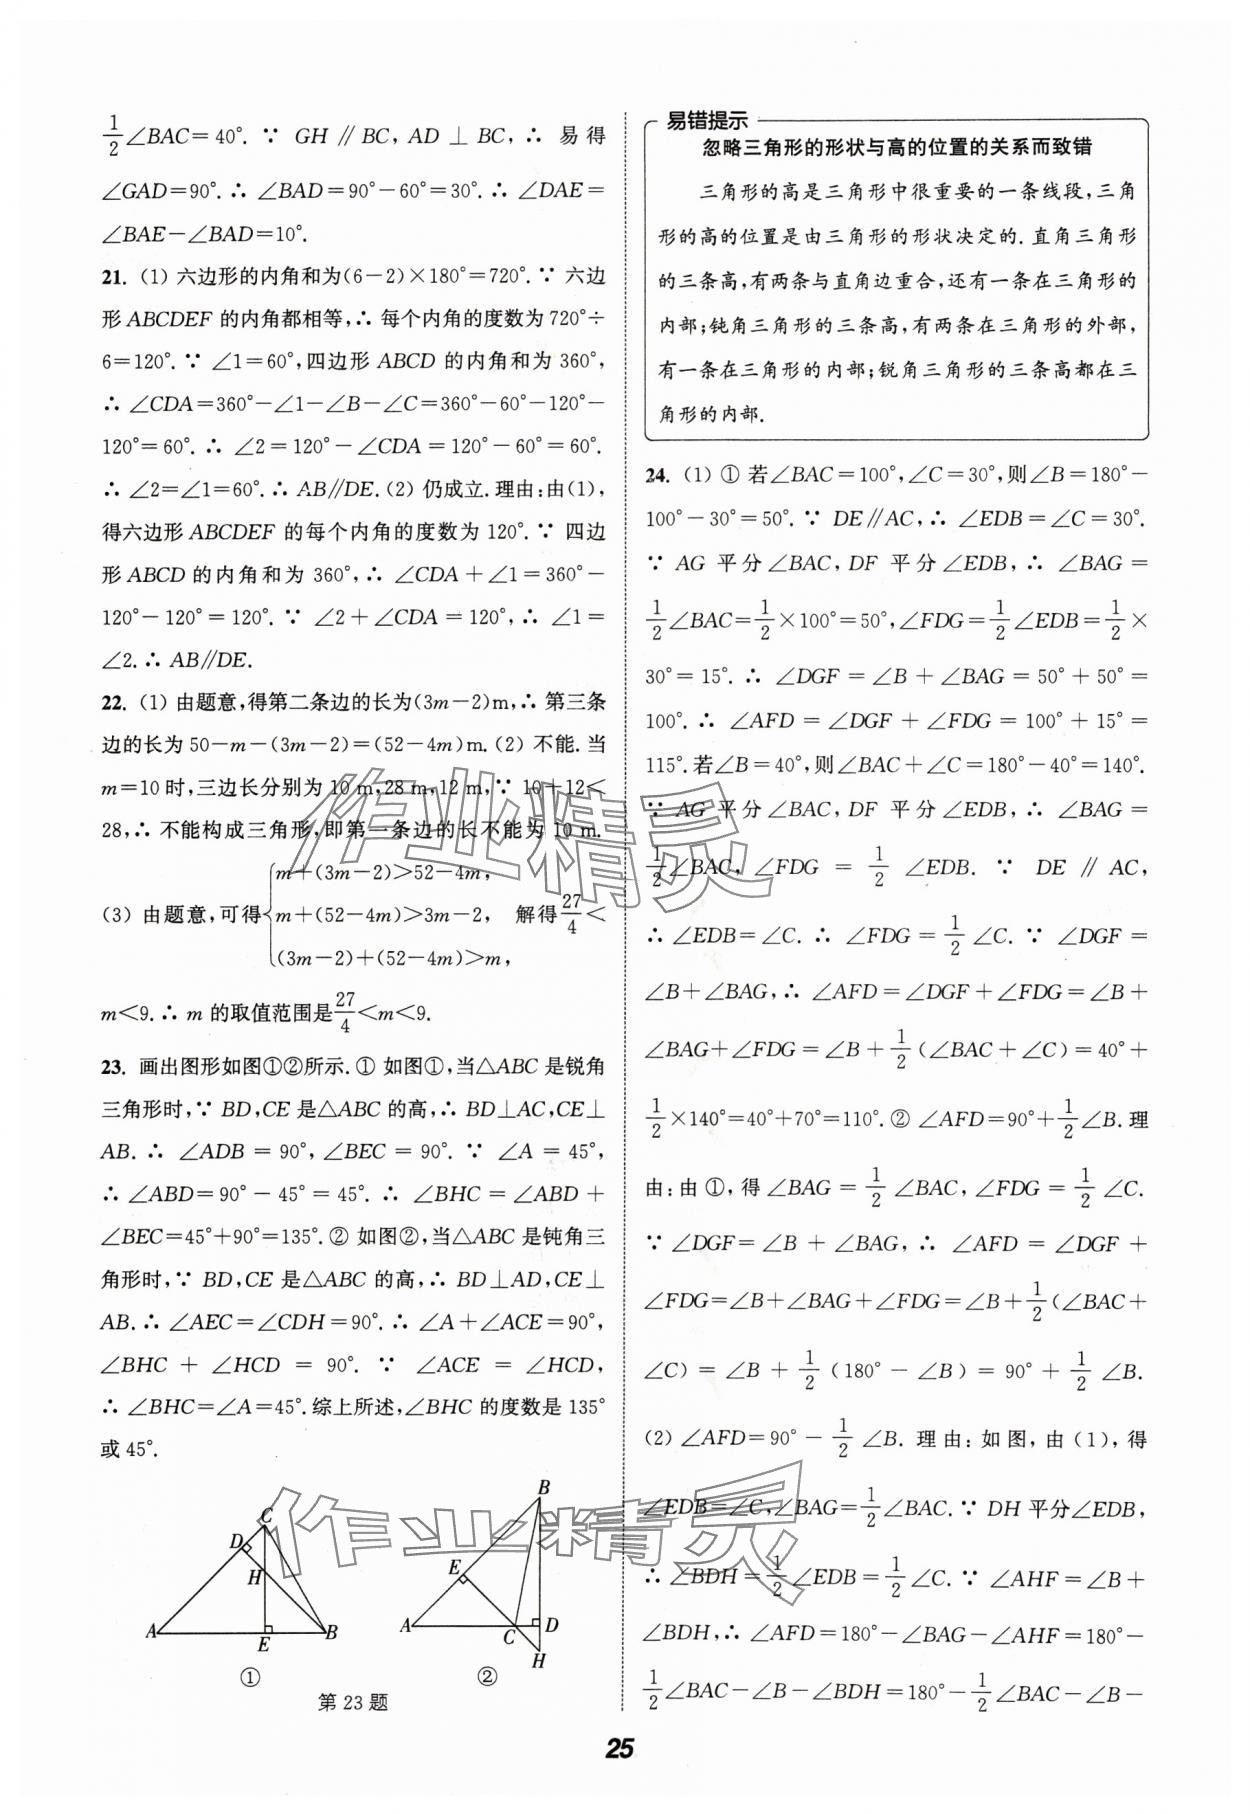 1/2∠BAC=40°. ∵ GH∥BC, AD⊥BC, ∴ 易得
∠GAD=90°. ∴ ∠BAD=90°-60°=30°. ∴ ∠DAE=
∠BAE-∠BAD=10°.
21. (1) 六边形的内角和为(6-2)×180°=720°. ∵ 六边
形ABCDEF 的内角都相等, ∴ 每个内角的度数为720°÷
6=120°. ∵ ∠1=60°, 四边形 ABCD 的内角和为 360°,
∴ ∠CDA=360°-∠1-∠B-∠C=360°-60°-120°-
120°=60°. ∴ ∠2=120°-∠CDA=120°-60°=60°.
∴ ∠2=∠1=60°. ∴ AB∥DE. (2) 仍成立. 理由: 由(1),
得六边形 ABCDEF 的每个内角的度数为 120°. ∵ 四边
形 ABCD 的内角和为 360°, ∴ ∠CDA+∠1=360°-
120°-120°=120°. ∵ ∠2+∠CDA=120°, ∴ ∠1=
∠2. ∴ AB∥DE.
22. (1) 由题意, 得第二条边的长为(3m-2)m, ∴ 第三条
边的长为 50-m-(3m-2)=(52-4m)m. (2) 不能. 当
m=10 时, 三边长分别为 10 m, 28 m, 12 m, ∵ 10+12<
28, ∴ 不能构成三角形, 即第一条边的长不能为 10 m.
m+(3m-2)>52-4m,
(3) 由题意, 可得{m+(52-4m)>3m-2, 解得27/4<
(3m-2)+(52-4m)>m,
m<9. ∴ m 的取值范围是27/4<m<9.
23. 画出图形如图①②所示. ① 如图①, 当△ABC 是锐角
三角形时, ∵ BD, CE 是△ABC 的高, ∴ BD⊥AC, CE⊥
AB. ∴ ∠ADB=90°, ∠BEC=90°. ∵ ∠A=45°,
∴ ∠ABD=90°-45°=45°. ∴ ∠BHC=∠ABD+
∠BEC=45°+90°=135°. ② 如图②, 当△ABC 是钝角三
角形时, ∵ BD, CE 是△ABC 的高, ∴ BD⊥AD, CE⊥
AB. ∴ ∠AEC=∠CDH=90°. ∴ ∠A+∠ACE=90°,
∠BHC+∠HCD=90°. ∵ ∠ACE=∠HCD,
∴ ∠BHC=∠A=45°. 综上所述, ∠BHC 的度数是 135°
或 45°.
C
D
H
A
E
B
①
B
E
A
C
D
H
②
第 23 题
易错提示
忽略三角形的形状与高的位置的关系而致错
三角形的高是三角形中很重要的一条线段, 三角
形的高的位置是由三角形的形状决定的. 直角三角形
的三条高, 有两条与直角边重合, 还有一条在三角形的
内部; 钝角三角形的三条高, 有两条在三角形的外部,
有一条在三角形的内部; 锐角三角形的三条高都在三
角形的内部.
24. (1) ① 若∠BAC=100°, ∠C=30°, 则∠B=180°-
100°-30°=50°. ∵ DE∥AC, ∴ ∠EDB=∠C=30°.
∵ AG 平分∠BAC, DF 平分∠EDB, ∴ ∠BAG=
1/2∠BAC=1/2×100°=50°, ∠FDG=1/2∠EDB=1/2×
30°=15°. ∴ ∠DGF=∠B+∠BAG=50°+50°=
100°. ∴ ∠AFD=∠DGF+∠FDG=100°+15°=
115°. 若∠B=40°, 则∠BAC+∠C=180°-40°=140°.
∵ AG 平分∠BAC, DF 平分∠EDB, ∴ ∠BAG=
1/2∠BAC, ∠FDG=1/2∠EDB. ∵ DE∥AC,
∴ ∠EDB=∠C. ∴ ∠FDG=1/2∠C. ∵ ∠DGF=
∠B+∠BAG, ∴ ∠AFD=∠DGF+∠FDG=∠B+
∠BAG+∠FDG=∠B+1/2(∠BAC+∠C)=40°+
1/2×140°=40°+70°=110°. ② ∠AFD=90°+1/2∠B. 理
由: 由①, 得∠BAG=1/2∠BAC, ∠FDG=1/2∠C.
∵ ∠DGF=∠B+∠BAG, ∴ ∠AFD=∠DGF+
∠FDG=∠B+∠BAG+∠FDG=∠B+1/2(∠BAC+
∠C)=∠B+1/2(180°-∠B)=90°+1/2∠B.
(2) ∠AFD=90°-1/2∠B. 理由: 如图, 由(1), 得
∠EDB=∠C, ∠BAG=1/2∠BAC. ∵ DH平分∠EDB,
∴ ∠BDH=1/2∠EDB=1/2∠C. ∵ ∠AHF=∠B+
∠BDH, ∴ ∠AFD=180°-∠BAG-∠AHF=180°-
1/2∠BAC-∠B-∠BDH=180°-1/2∠BAC-∠B-
作业精灵
作业精灵
25